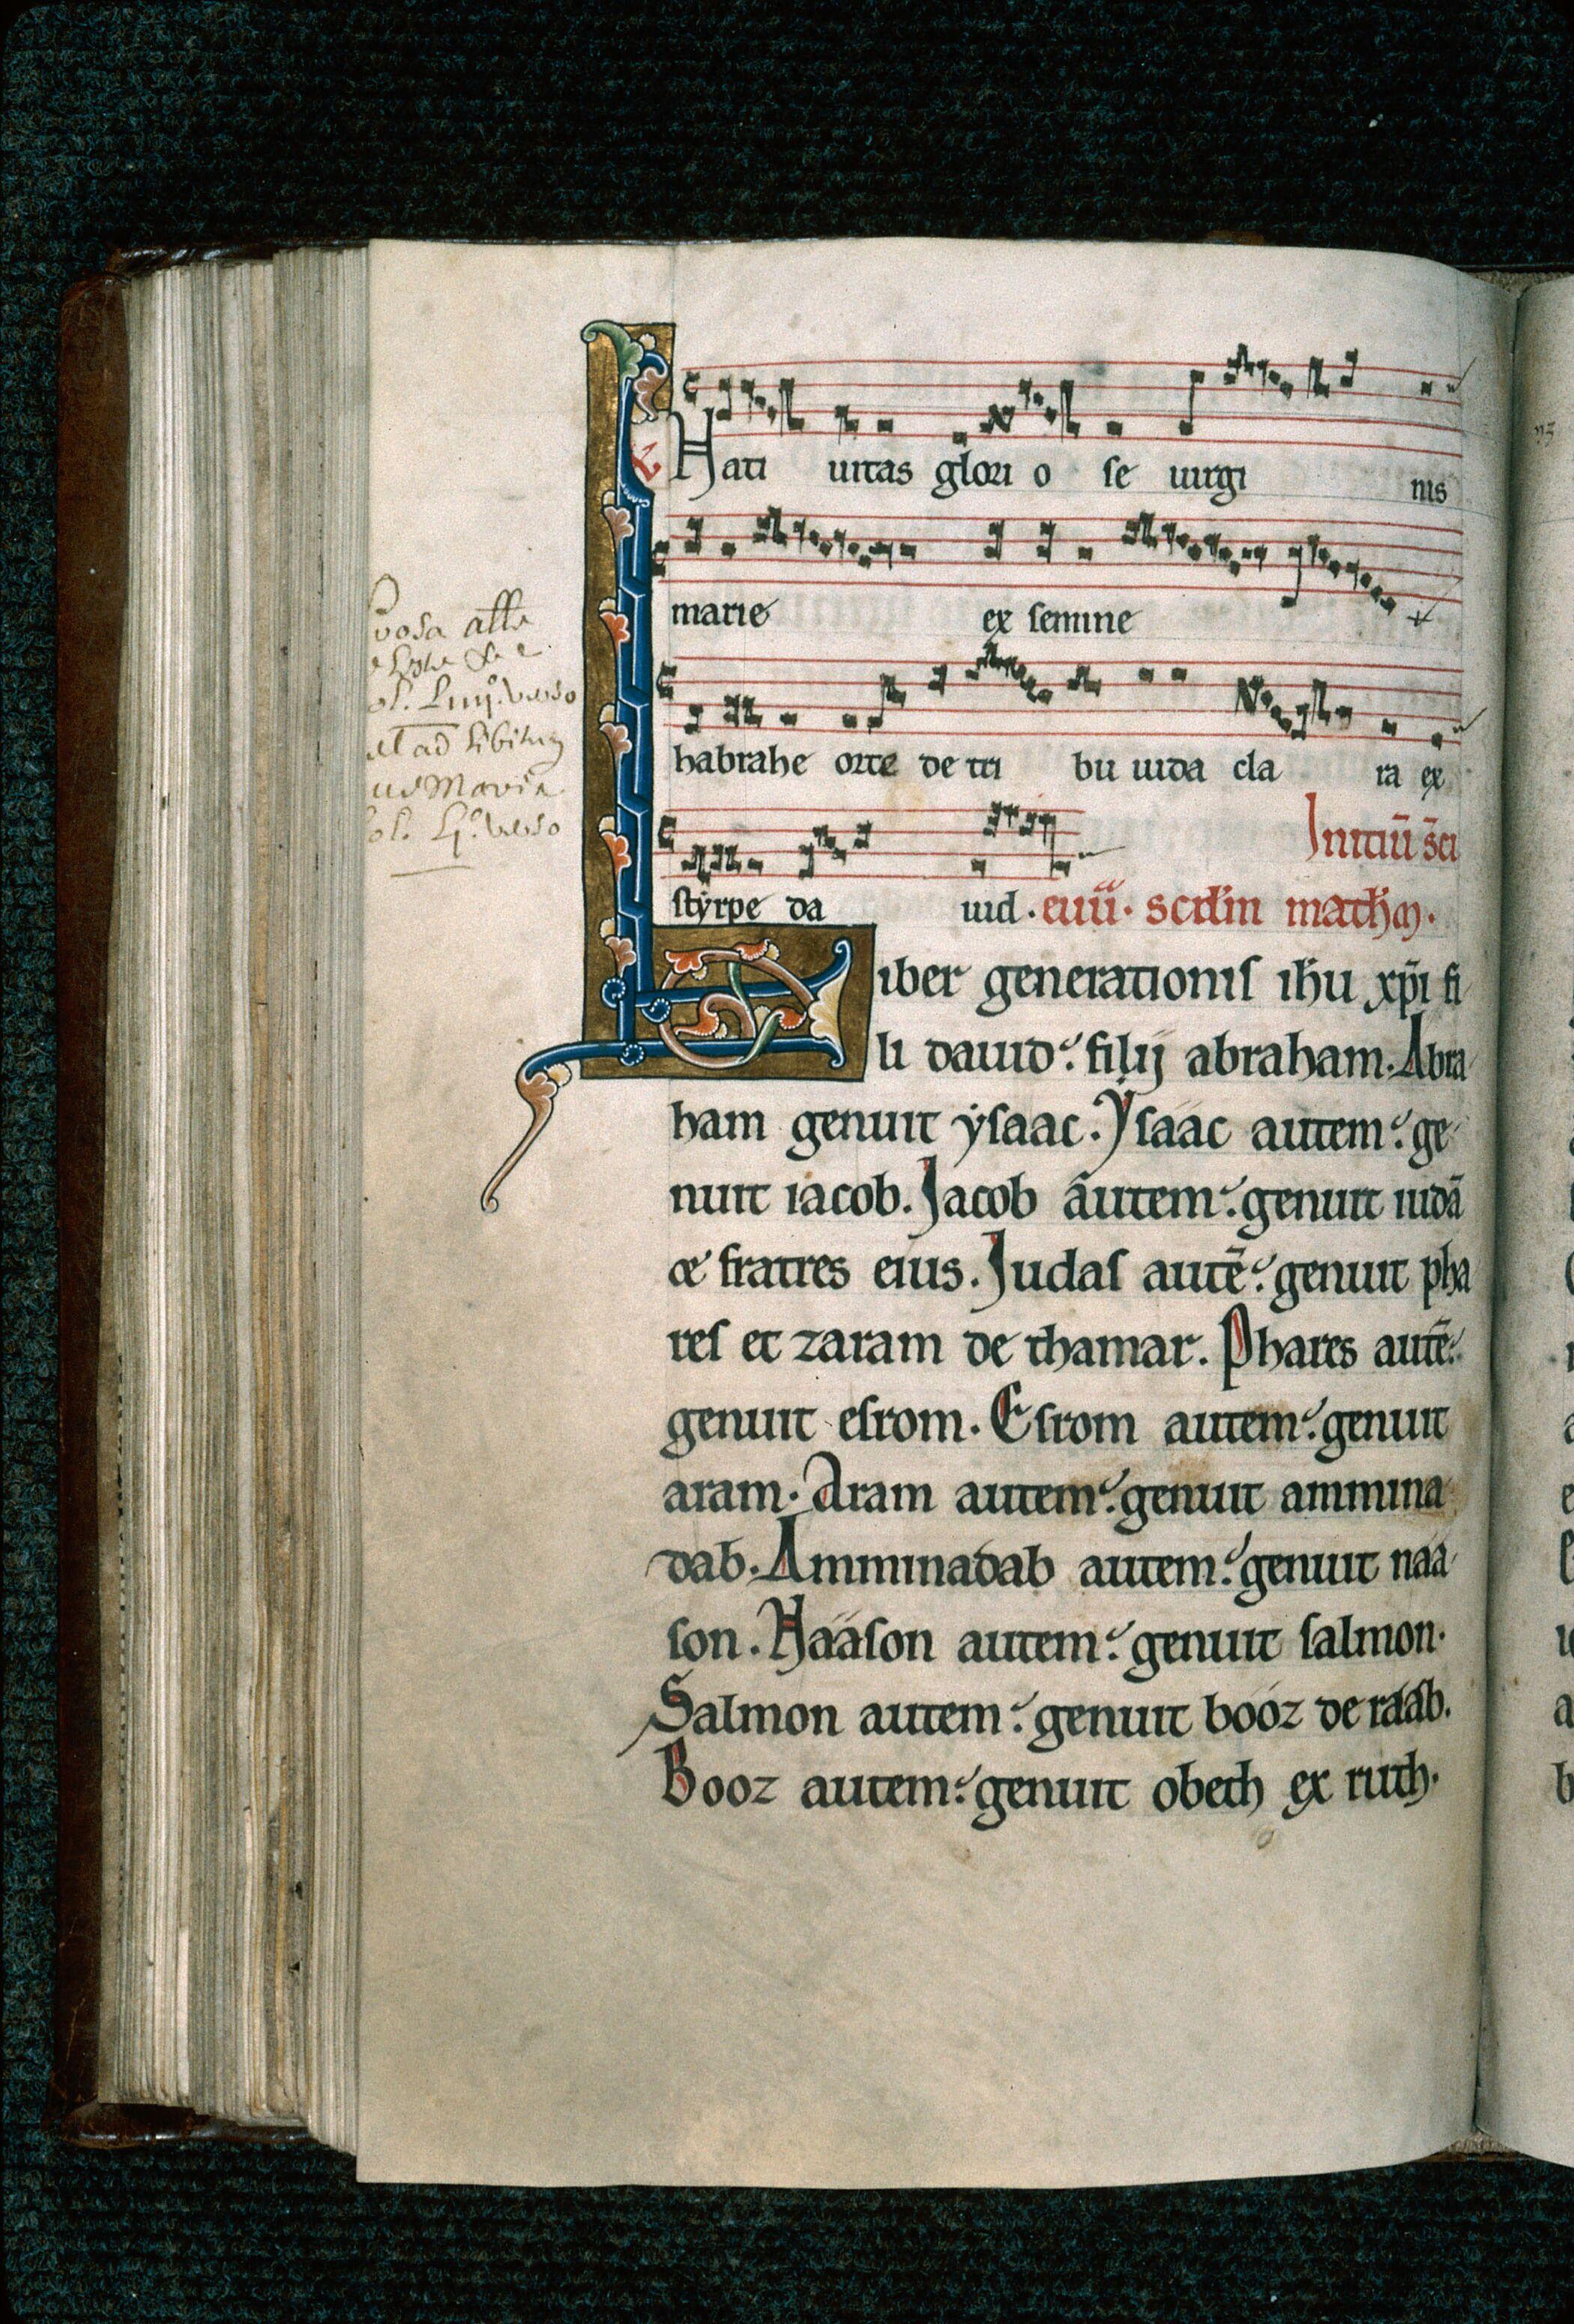 Nati uitas glori o se uirgi nis
marie ex semine
habrahe orte de tri bu iuda cla ra ex
styrpe da uid. Initiū sc̄i
euū. scdm math̄m.
Liber generationis ih̄u xp̄i fi
li dauid: filij abraham. Abra
ham genuit ẏsaac. Ysaac autem: ge
nuit iacob. Jacob autem: genuit iudā
& fratres eius. Judas autē: genuit pha
res et zaram de thamar. Phares autē:
genuit esrom. Esrom autem: genuit
aram. Aram autem: genuit ammina
dab. Amminadab autem: genuit naa
son. Naason autem: genuit salmon.
Salmon autem: genuit booz de raab.
Booz autem: genuit obeth ex ruth.
verso
ad libitum
Maria
verso